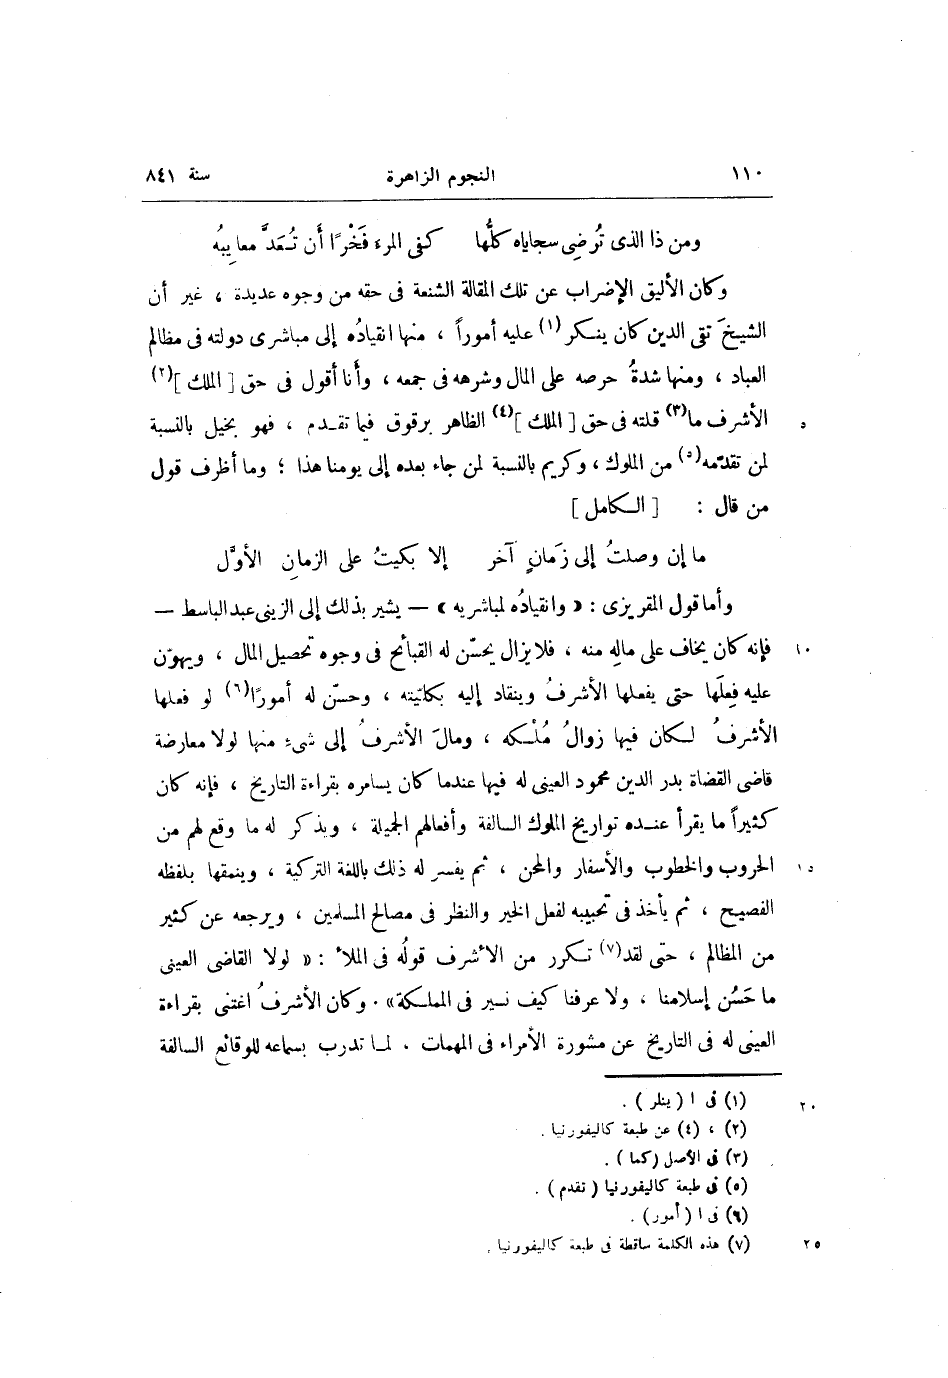 ١١٠ النجوم الزاهرة سنة ٨٤١
ومن ذا الذى تُرْضِى سجاياه كلُّها كفى المرء فَخْرًا أَن تُعَدَّ معايِبُه
وكان الأليق الإضراب عن تلك المقالة الشنعة فى حقه من وجوه عديدة ، غير أن
الشيخَ تقى الدين كان ينكر (١) عليه أموراً ، منها انقيادُه إلى مباشرى دولته فى مظالم
العباد ، ومنها شدةُ حرصه على المال وشرهه فى جمعه ، وأنا أقول فى حق [ الملك ](٢)
الأشرف ما(٣) قلته فى حق [ الملك ](٤) الظاهر برقوق فيما تقدم ، فهو بخيل بالنسبة ٥
لمن تقدّمه(٥) من الملوك ، وكريم بالنسبة لمن جاء بعده إلى يومنا هذا ؛ وما أظرف قول
من قال : [ الكامل ]
ما إن وصلتُ إلى زَمانٍ آخر إلا بكيتُ على الزمانِ الأوَّل
وأما قول المقريزى : « وانقيادُه لمباشريه » — يشير بذلك إلى الزينى عبد الباسط —
فإنه كان يخاف على مالِه منه ، فلا يزال يحسّن له القبائح فى وجوه تحصيل المال ، ويهوّن ١٠
عليه فِعلَها حتى يفعلها الأشرفُ وينقاد إليه بكليّته ، وحسّن له أمورًا(٦) لو فعلها
الأشرفُ لكان فيها زوالُ مُلْكه ، ومالَ الأشرفُ إلى شىء منها لولا معارضة
قاضى القضاة بدر الدين محمود العينى له فيها عندما كان يسامره بقراءة التاريخ ، فإنه كان
كثيراً ما يقرأ عنده تواريخ الملوك السالفة وأفعالهم الجميلة ، ويذكر له ما وقع لهم من
الحروب والخطوب والأسفار والمحن ، ثم يفسر له ذلك باللغة التركية ، وينمقها بلفظه ١٥
الفصيح ، ثم يأخذ فى تحبيبه لفعل الخير والنظر فى مصالح المسلمين ، ويرجعه عن كثير
من المظالم ، حتى لقد(٧) تكرر من الأشرف قولُه فى الملأ : « لولا القاضى العينى
ما حَسُن إسلامنا ، ولا عرفنا كيف نسير فى المملكة» . وكان الأشرفُ اغتنى بقراءة
العينى له فى التاريخ عن مشورة الأمراء فى المهمات . لما تدرب بسماعه للوقائع السالفة
(١) فى ا ( ينلر ) . ٢٠
(٢) ، (٤) عن طبعة كاليفورنيا .
(٣) فى الأصل (كما ) .
(٥) فى طبعة كاليفورنيا ( تقدم ) .
(٦) فى ا ( أمور) .
(٧) هذه الكلمة ساقطة فى طبعة كاليفورنيا . ٢٥